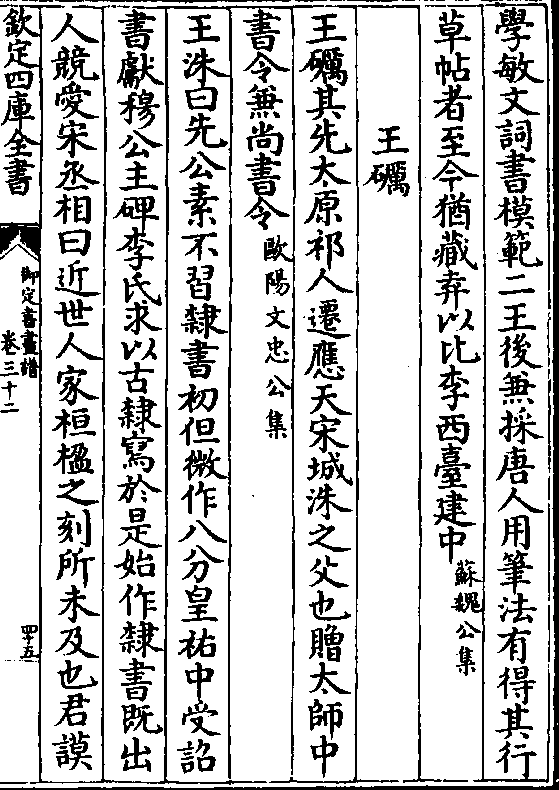 學敏文詞書模範二王後兼採唐人用筆法有得其行
草帖者至今猶藏弆以比李西臺建中蘇魏公集
王礪
王礪其先太原祁人遷應天宋城洙之父也贈太師中
書令兼尚書令歐陽文忠公集
王洙曰先公素不習隸書初但微作八分皇祐中受詔
書獻穆公主碑李氏求以古隸寫於是始作隸書既出
人競愛宋丞相曰近世人家桓楹之刻所未及也君謨
欽定四庫全書
御定書畫譜
卷三十二
四十五